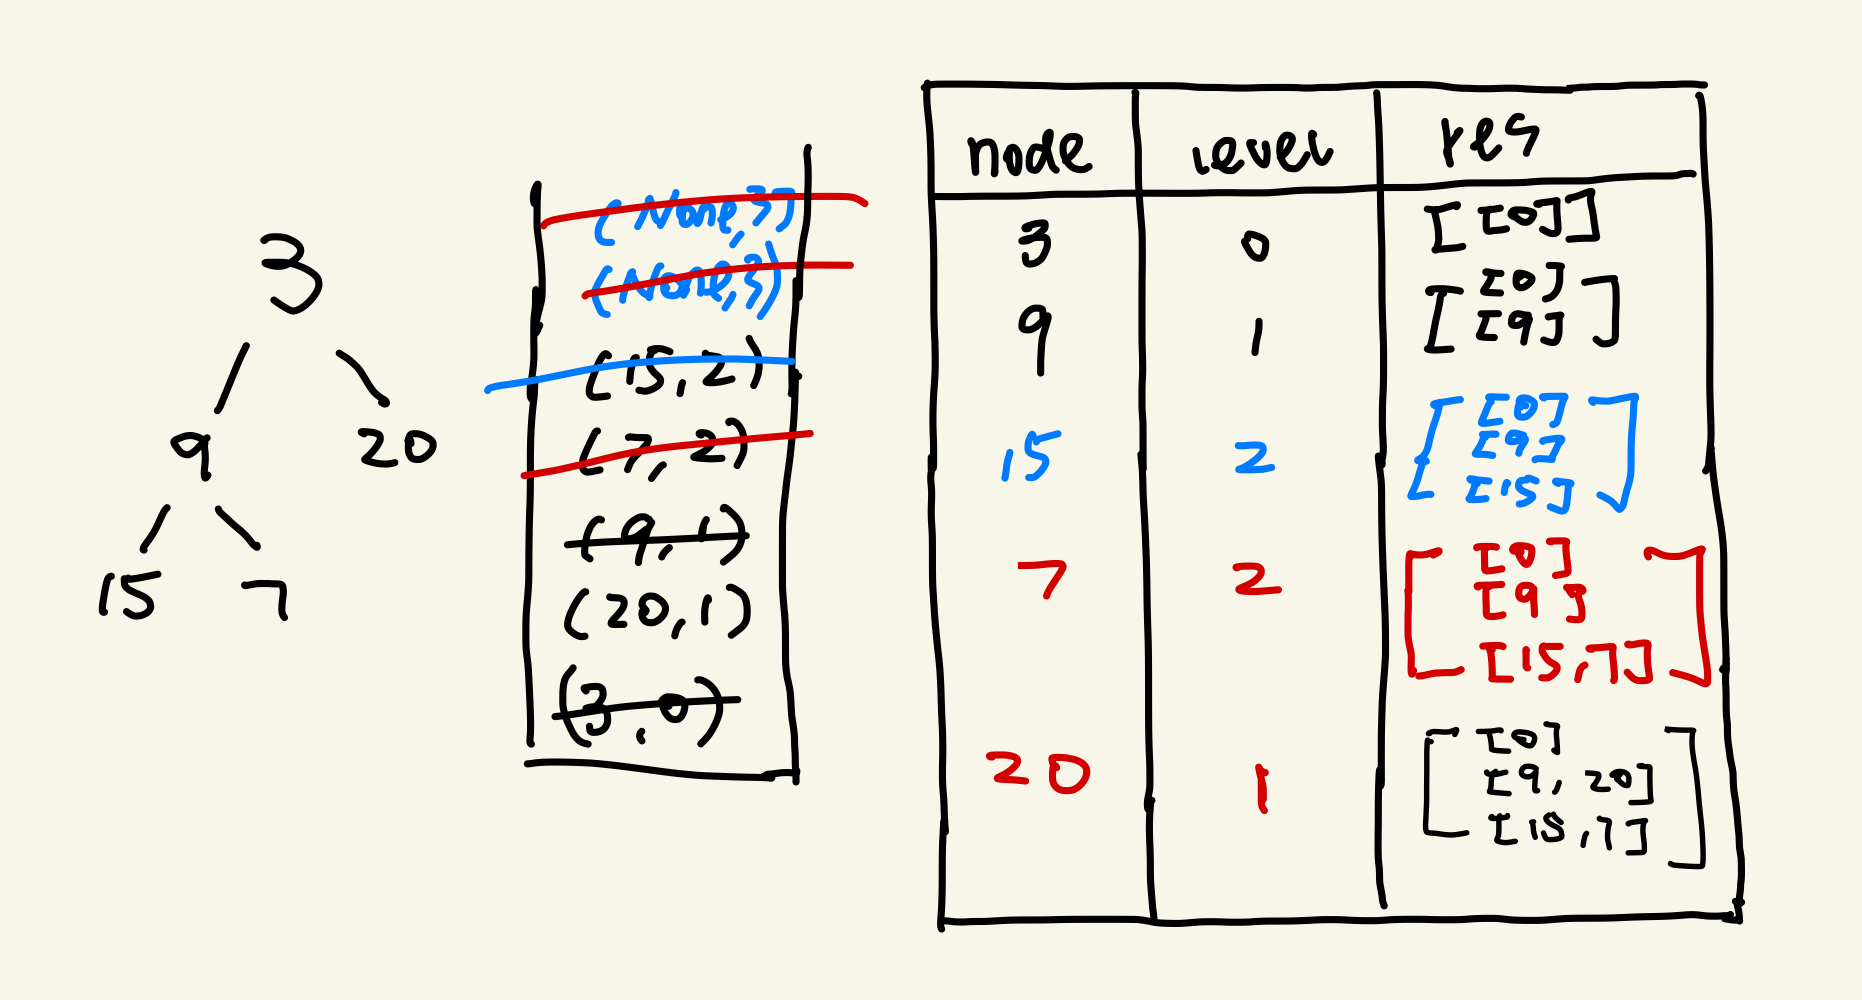 3
9 20
15 7
(None,3)
(None,3)
(15,2)
(7,2)
(9,1)
(20,1)
(3,0)
node level res
3 0 [[0]]
9 1 [[0]
[9]]
15 2 [[0]
[9]
[15]]
7 2 [[0]
[9]
[15,7]]
20 1 [[0]
[9, 20]
[15,7]]